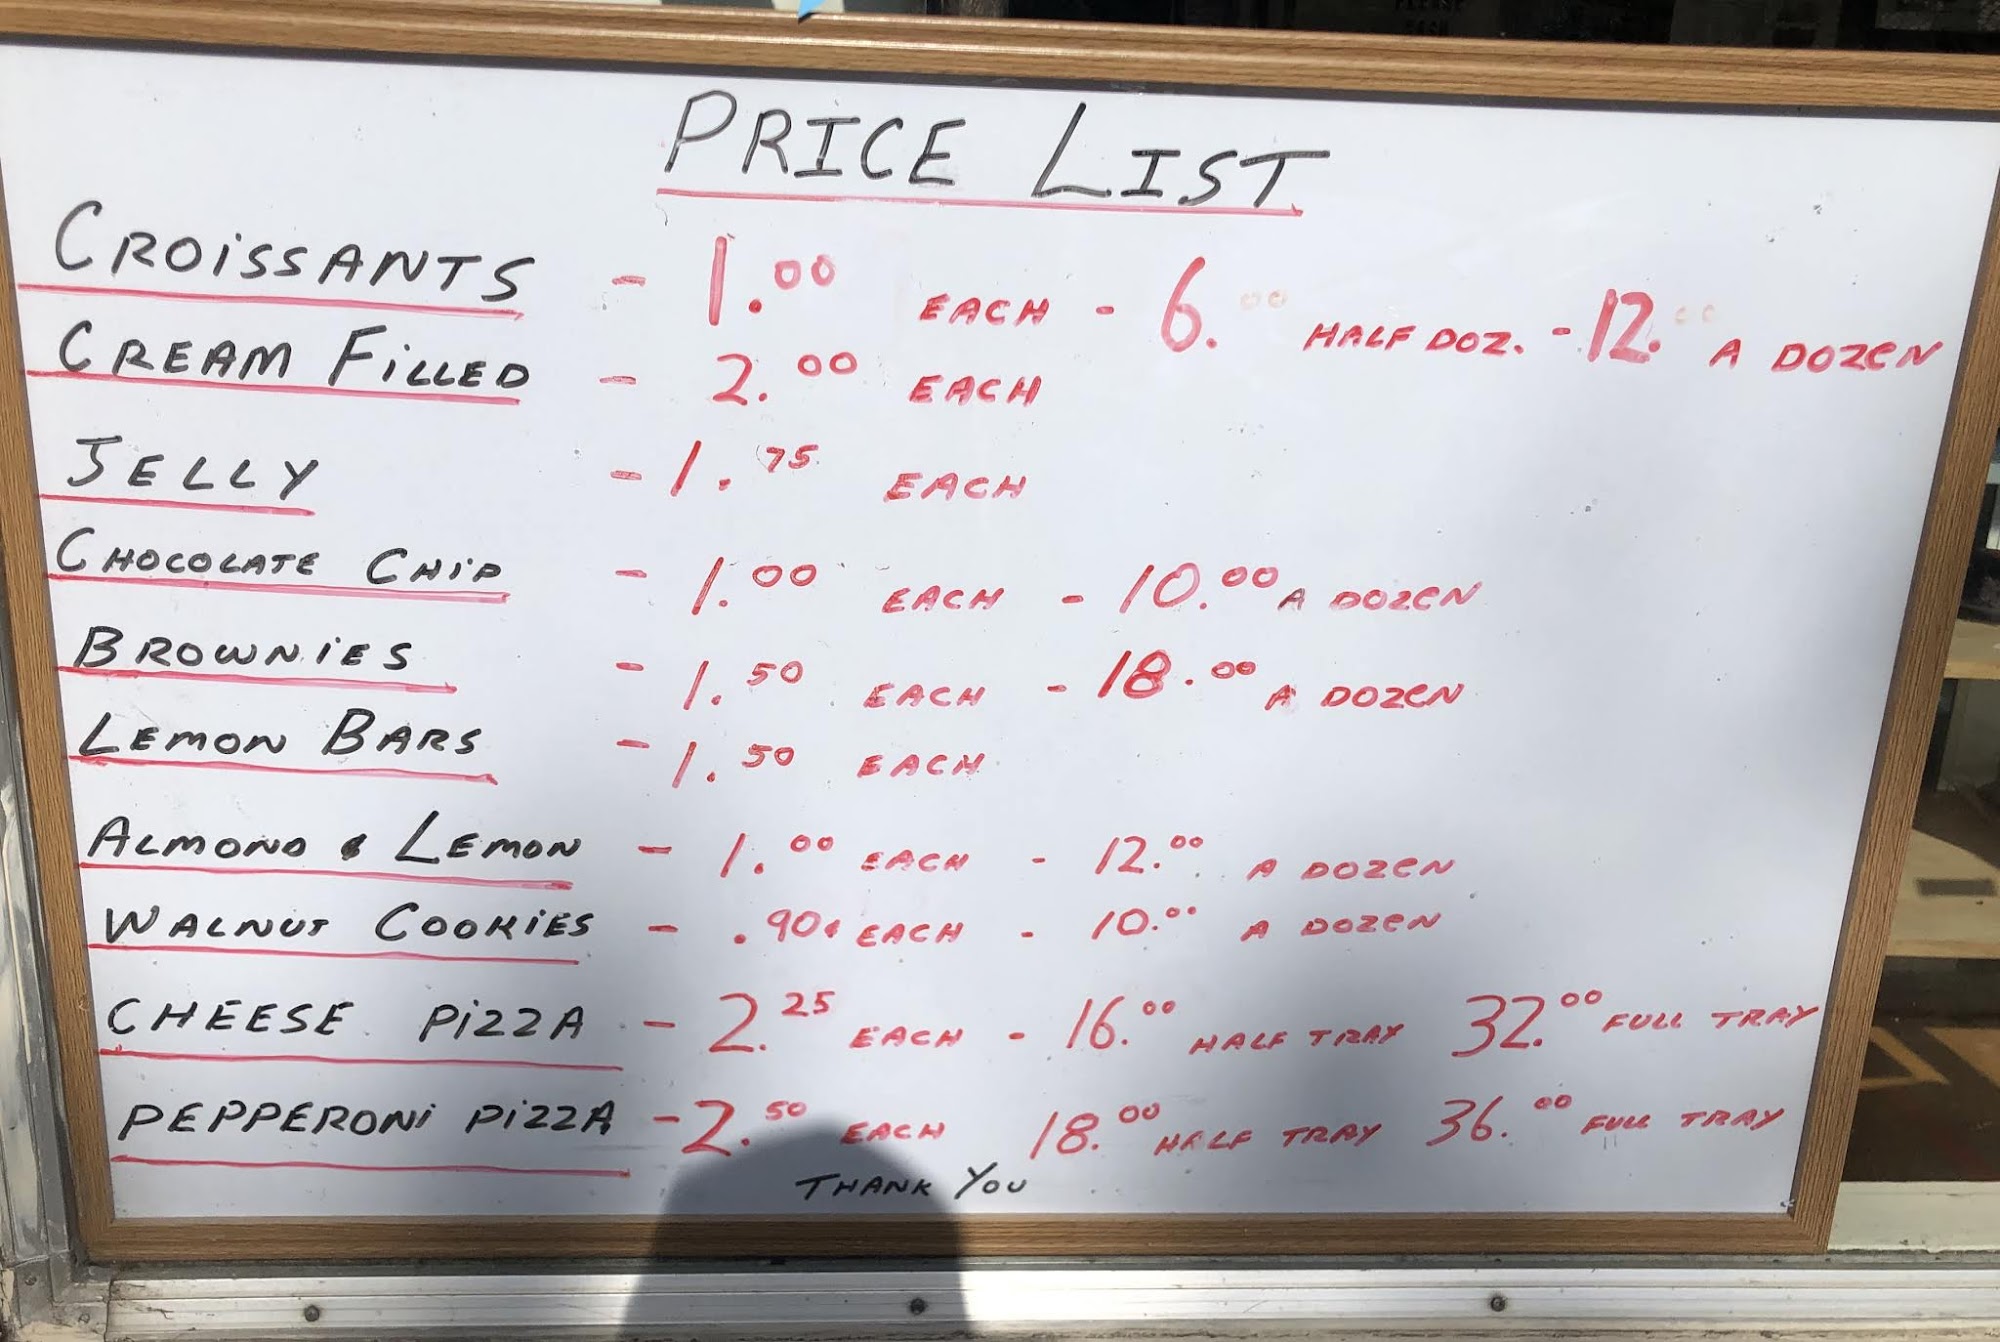 PRICE LIST
CROiSSANTS - 1.00 EACH - 6.00 HALF DOZ. - 12.00 A DOZEN
CREAM FiLLED - 2.00 EACH
JELLY - 1.75 EACH
CHOCOLATE CHiP - 1.00 EACH - 10.00 A DOZEN
BROWNiES - 1.50 EACH - 18.00 A DOZEN
LEMON BARS - 1.50 EACH
ALMOND & LEMON - 1.00 EACH - 12.00 A DOZEN
WALNUT COOKiES - .90¢ EACH - 10.00 A DOZEN
CHEESE PiZZA - 2.25 EACH - 16.00 HALF TRAY 32.00 FULL TRAY
PEPPERONi PiZZA - 2.50 EACH 18.00 HALF TRAY 36.00 FULL TRAY
THANK YOU